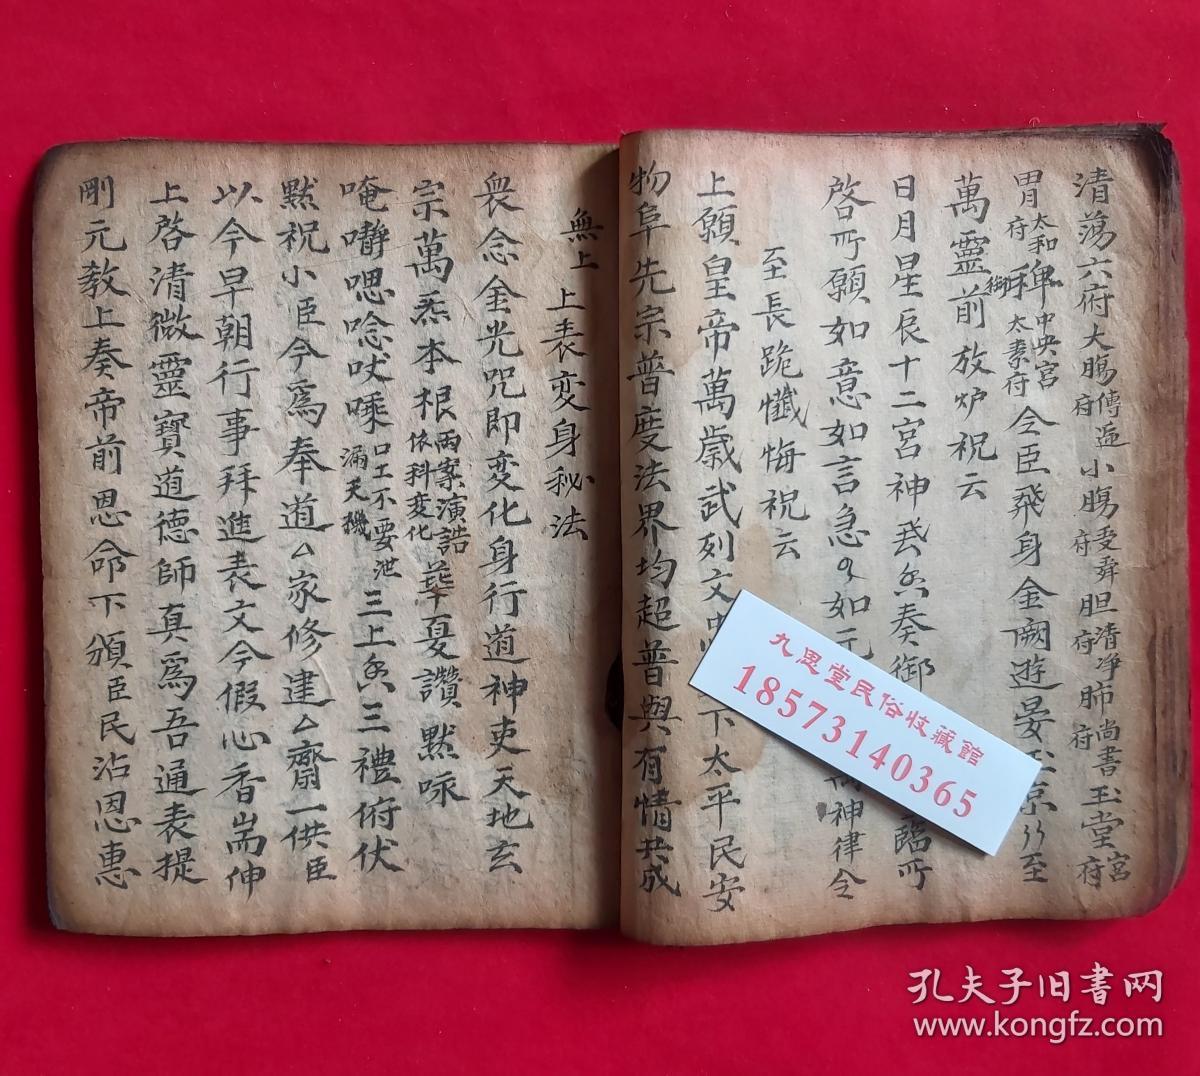 清蕩六府大腸傳送府小腸受舜府胆清净府肺尚書府玉堂宮
胃太和府脾中央宮太素府令臣飛身金闕遊宴玉京至
萬靈前放炉祝云
日月星辰十二宮神奏御臨所
啓所願如意如言急如元神律令
至長跪懺悔祝云
上願皇帝萬歲武列文忠下太平民安
物阜先宗普度法界均超普與有情共成
無上
上表变身秘法
衆念金光咒即变化身行道神吏天地玄
宗萬炁本根兩案演誥依科变化華夏讚默咏
唵嚼嗯唸哎嗪口工不要泄漏天機三上香三禮俯伏
黙祝小臣今爲奉道厶家修建厶齋一供臣
以今早朝行事拜進表文今假心香耑伸
上啓清微靈寳道德師真爲吾通表提
剛元教上奏帝前恩命下頒臣民沾恩惠
九思堂民俗收藏館
18573140365
孔夫子旧书网
www.kongfz.com